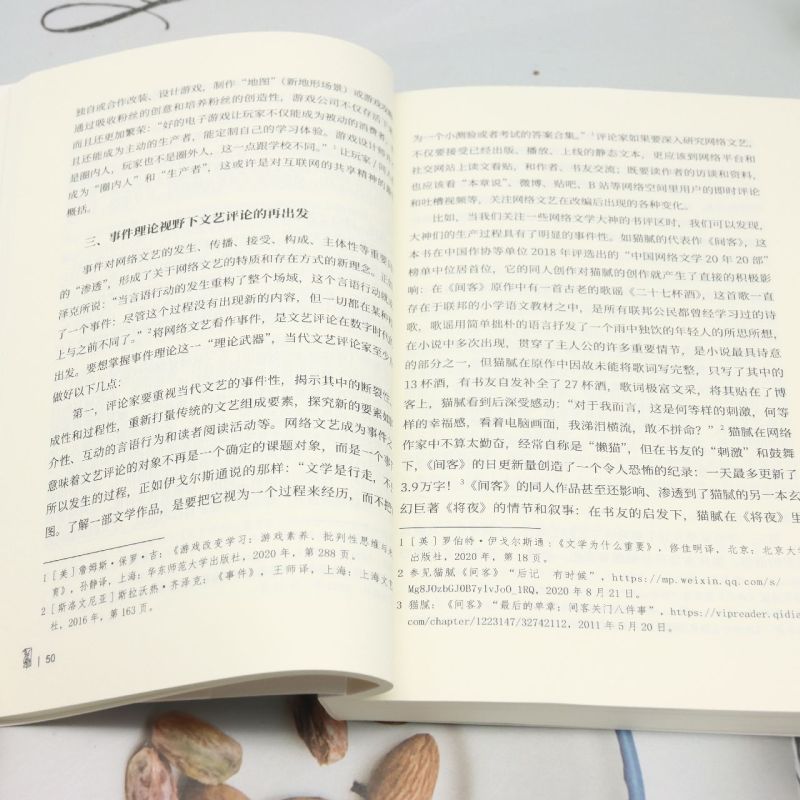 独自或合作改装、设计游戏，制作“地图”（新地形场景）或游戏
通过吸收粉丝的创意和培养粉丝的创造性，游戏公司不仅存活下
而且还更加繁荣：“好的电子游戏让玩家不仅能成为被动的消费者
且还能成为主动的生产者，能定制自己的学习体验。游戏设计师
是圈内人，玩家也不是圈外人，这一点跟学校不同。”1让玩家
成为“圈内人”和“生产者”，这或许是对互联网的共享精神的
概括。
三、事件理论视野下文艺评论的再出发
事件对网络文艺的发生、传播、接受、构成、主体性等重要
的“渗透”，形成了关于网络文艺的特质和存在方式的新理念。正
泽克所说：“当言语行动的发生重构了整个场域，这个言语行动就
了一个事件：尽管这个过程没有出现新的内容，但一切都在某种
上与之前不同了。”2将网络文艺看作事件，是文艺评论在数字时代
出发。要想掌握事件理论这一“理论武器”，当代文艺评论家至少
做好以下几点：
第一，评论家要重视当代文艺的事件性，揭示其中的断裂
成性和过程性，重新打量传统的文艺组成要素，探究新的要素如
介性、互动的言语行为和读者阅读活动等。网络文艺成为事件
意味着文艺评论的对象不再是一个确定的课题对象，而是一个事
所以发生的过程，正如伊格尔斯通说的那样：“文学是行走，不
图。了解一部文学作品，是要把它视为一个过程来经历，而不把
1 [美] 詹姆斯·保罗·吉：《游戏改变学习：游戏素养、批判性思维与
育》，孙静译，上海：华东师范大学出版社，2020 年，第 288 页。
2 [斯洛文尼亚] 斯拉沃热·齐泽克：《事件》，王师译，上海：上海文
社，2016 年，第 163 页。
50
为一个小测验或者考试的答案合集。”1评论家如果要深入研究网络文艺，
不仅要接受已经出版、播放、上线的静态文本，更应该到网络平台和
社交网站上读文看贴，和作者、书友交流；既要读作者的访谈和资料，
也应该看“本章说”、微博、贴吧、B 站等网络空间里用户的即时评论
和吐槽视频等，关注网络文艺在改编后出现的各种变化。
比如，当我们关注一些网络文学大神的书评区时，我们可以发现，
大神们的生产过程具有了明显的事件性。如猫腻的代表作《间客》，这
本书在中国作协等单位 2018 年评选出的“中国网络文学 20 年 20 部”
榜单中位居首位，它的同人创作对猫腻的创作就产生了直接的积极影
响：在《间客》原作中有一首古老的歌谣《二十七杯酒》，这首歌一直
存在于联邦的小学语文教材之中，是所有联邦公民都曾经学习过的诗
歌，歌谣用简单拙朴的语言抒发了一个雨中独饮的年轻人的所思所想，
在小说中多次出现，贯穿了主人公的许多重要情节，是小说最具诗意
的部分之一，但猫腻在原作中因故未能将歌词写完整，只写了其中的
13 杯酒，有书友自发补全了 27 杯酒，歌词极富文采，将其贴在了博
客上，猫腻看到后深受感动：“对于我而言，这是何等样的刺激，何等
样的幸福感，看着电脑画面，我涕泪横流，敢不拼命？”2 猫腻在网络
作家中不算太勤奋，经常自称是“懒猫”，但在书友的“刺激”和鼓舞
下，《间客》的日更新量创造了一个令人恐怖的纪录：一天最多更新了
3.9万字！3《间客》的同人作品甚至还影响、渗透到了猫腻的另一本玄
幻巨著《将夜》的情节和叙事：在书友的启发下，猫腻在《将夜》里
1 [英] 罗伯特·伊戈尔斯通：《文学为什么重要》，修佳明译，北京：北京大
出版社，2020 年，第 18 页。
2 参见猫腻《间客》“后记 有时候”，https://mp.weixin.qq.com/s/
Mg8J0zbGJ0B7ylvJoO_1RQ，2020 年 8 月 21 日。
3 猫腻：《间客》“最后的单章：间客关门八件事”，https://vipreader.qidia
com/chapter/1223147/32742112，2011 年 5 月 20 日。